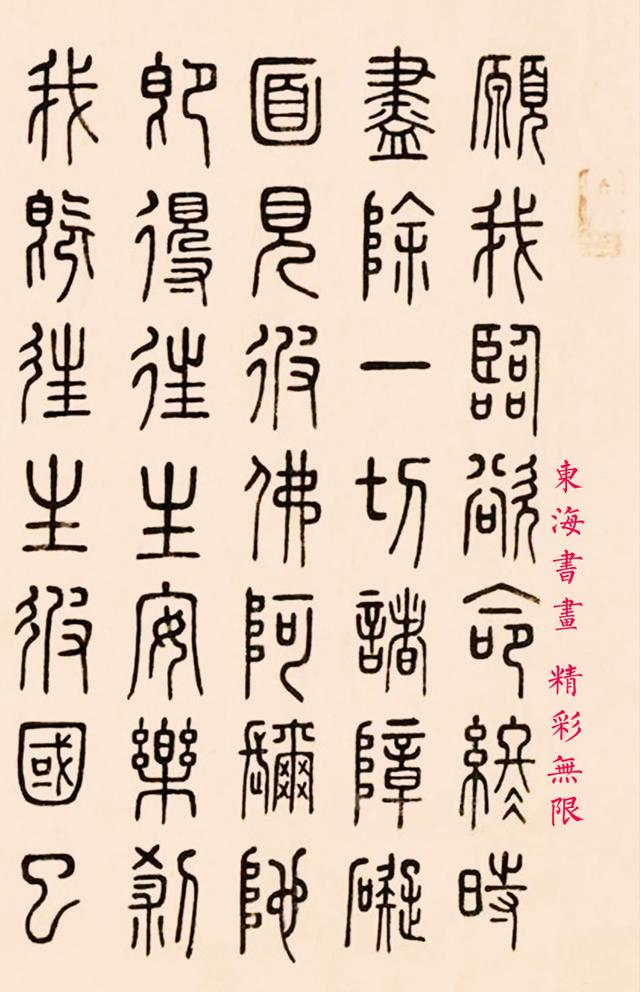 願我臨欲命終時
盡除一切諸障礙
面見彼佛阿彌陀
即得往生安樂剎
我既往生彼國已
東海書畫 精彩無限